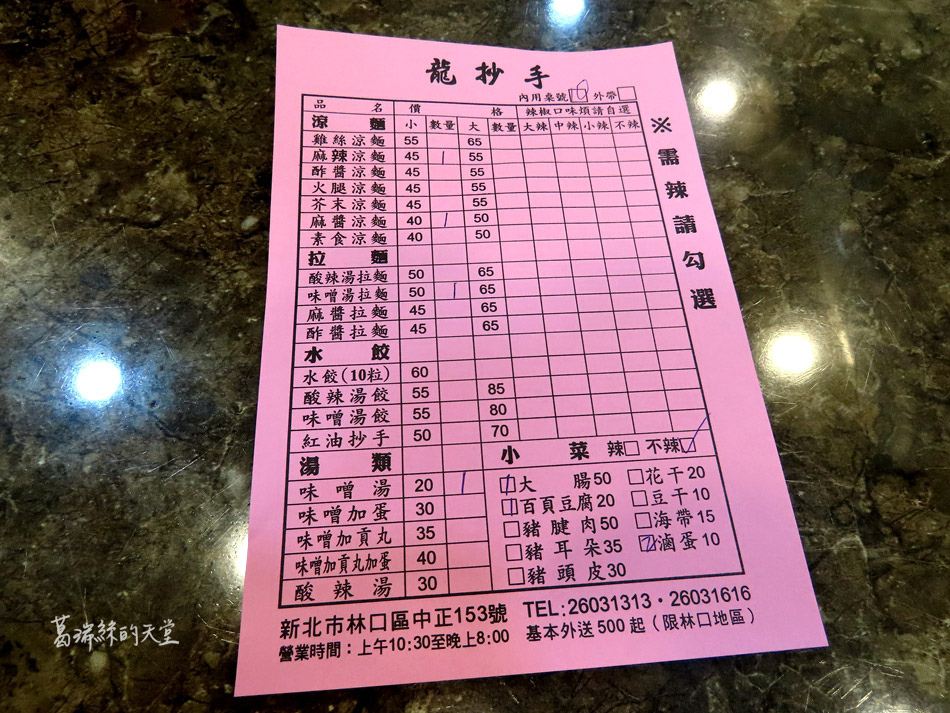 龍抄手
內用桌號16 外帶□
品名 價格 辣椒口味煩請自選
涼麵 小 數量 大 數量 大辣 中辣 小辣 不辣
雞絲涼麵 55 65
麻辣涼麵 45 1 55
酢醬涼麵 45 55
火腿涼麵 45 55
芥末涼麵 45 55
麻醬涼麵 40 1 50
素食涼麵 40 50
拉麵
酸辣湯拉麵 50 65
味噌湯拉麵 50 1 65
麻醬拉麵 45 65
酢醬拉麵 45 65
水餃
水餃(10粒) 60
酸辣湯餃 55 85
味噌湯餃 55 80
紅油抄手 50 70
湯類
味噌湯 20 1
味噌加蛋 30
味噌加貢丸 35
味噌加貢丸加蛋 40
酸辣湯 30
小菜 辣□ 不辣☑
1 大腸50 □花干20
1 百頁豆腐20 □豆干10
□豬腱肉50 □海帶15
□豬耳朵35 2 滷蛋10
□豬頭皮30
※需辣請勾選
新北市林口區中正153號 TEL:26031313・26031616
營業時間：上午10:30至晚上8:00 基本外送500起（限林口地區）
葛瑞絲的天堂